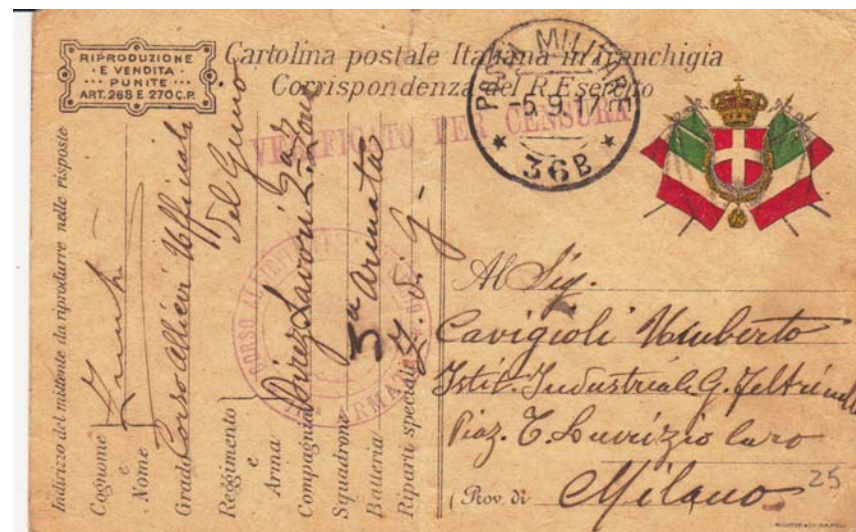 RIPRODUZIONE
E VENDITA
PUNITE
ART. 268 E 270 C.P.
Cartolina postale Italiana in franchigia
Corrispondenza del R. Esercito
VERIFICATO PER CENSURA
POSTA MILITARE
-5.9.17.
36B
Indirizzo del mittente da riprodurre nelle risposte
Cognome
e
Nome
Grado Corso Allievi Ufficiali
del Genio
Reggimento
e
Arma
Compagnia Direz Lavori 2ª Zona
Squadrone
Batteria 3ª Armata
Riparti speciali Z di G-
CORSO ALLIEVI
ARMATA
Al Sig.
Cavigioli Umberto
Istit. Industriale G. Feltrinelli
Piaz. T. Lucrezio Caro
(Prov. di Milano
25